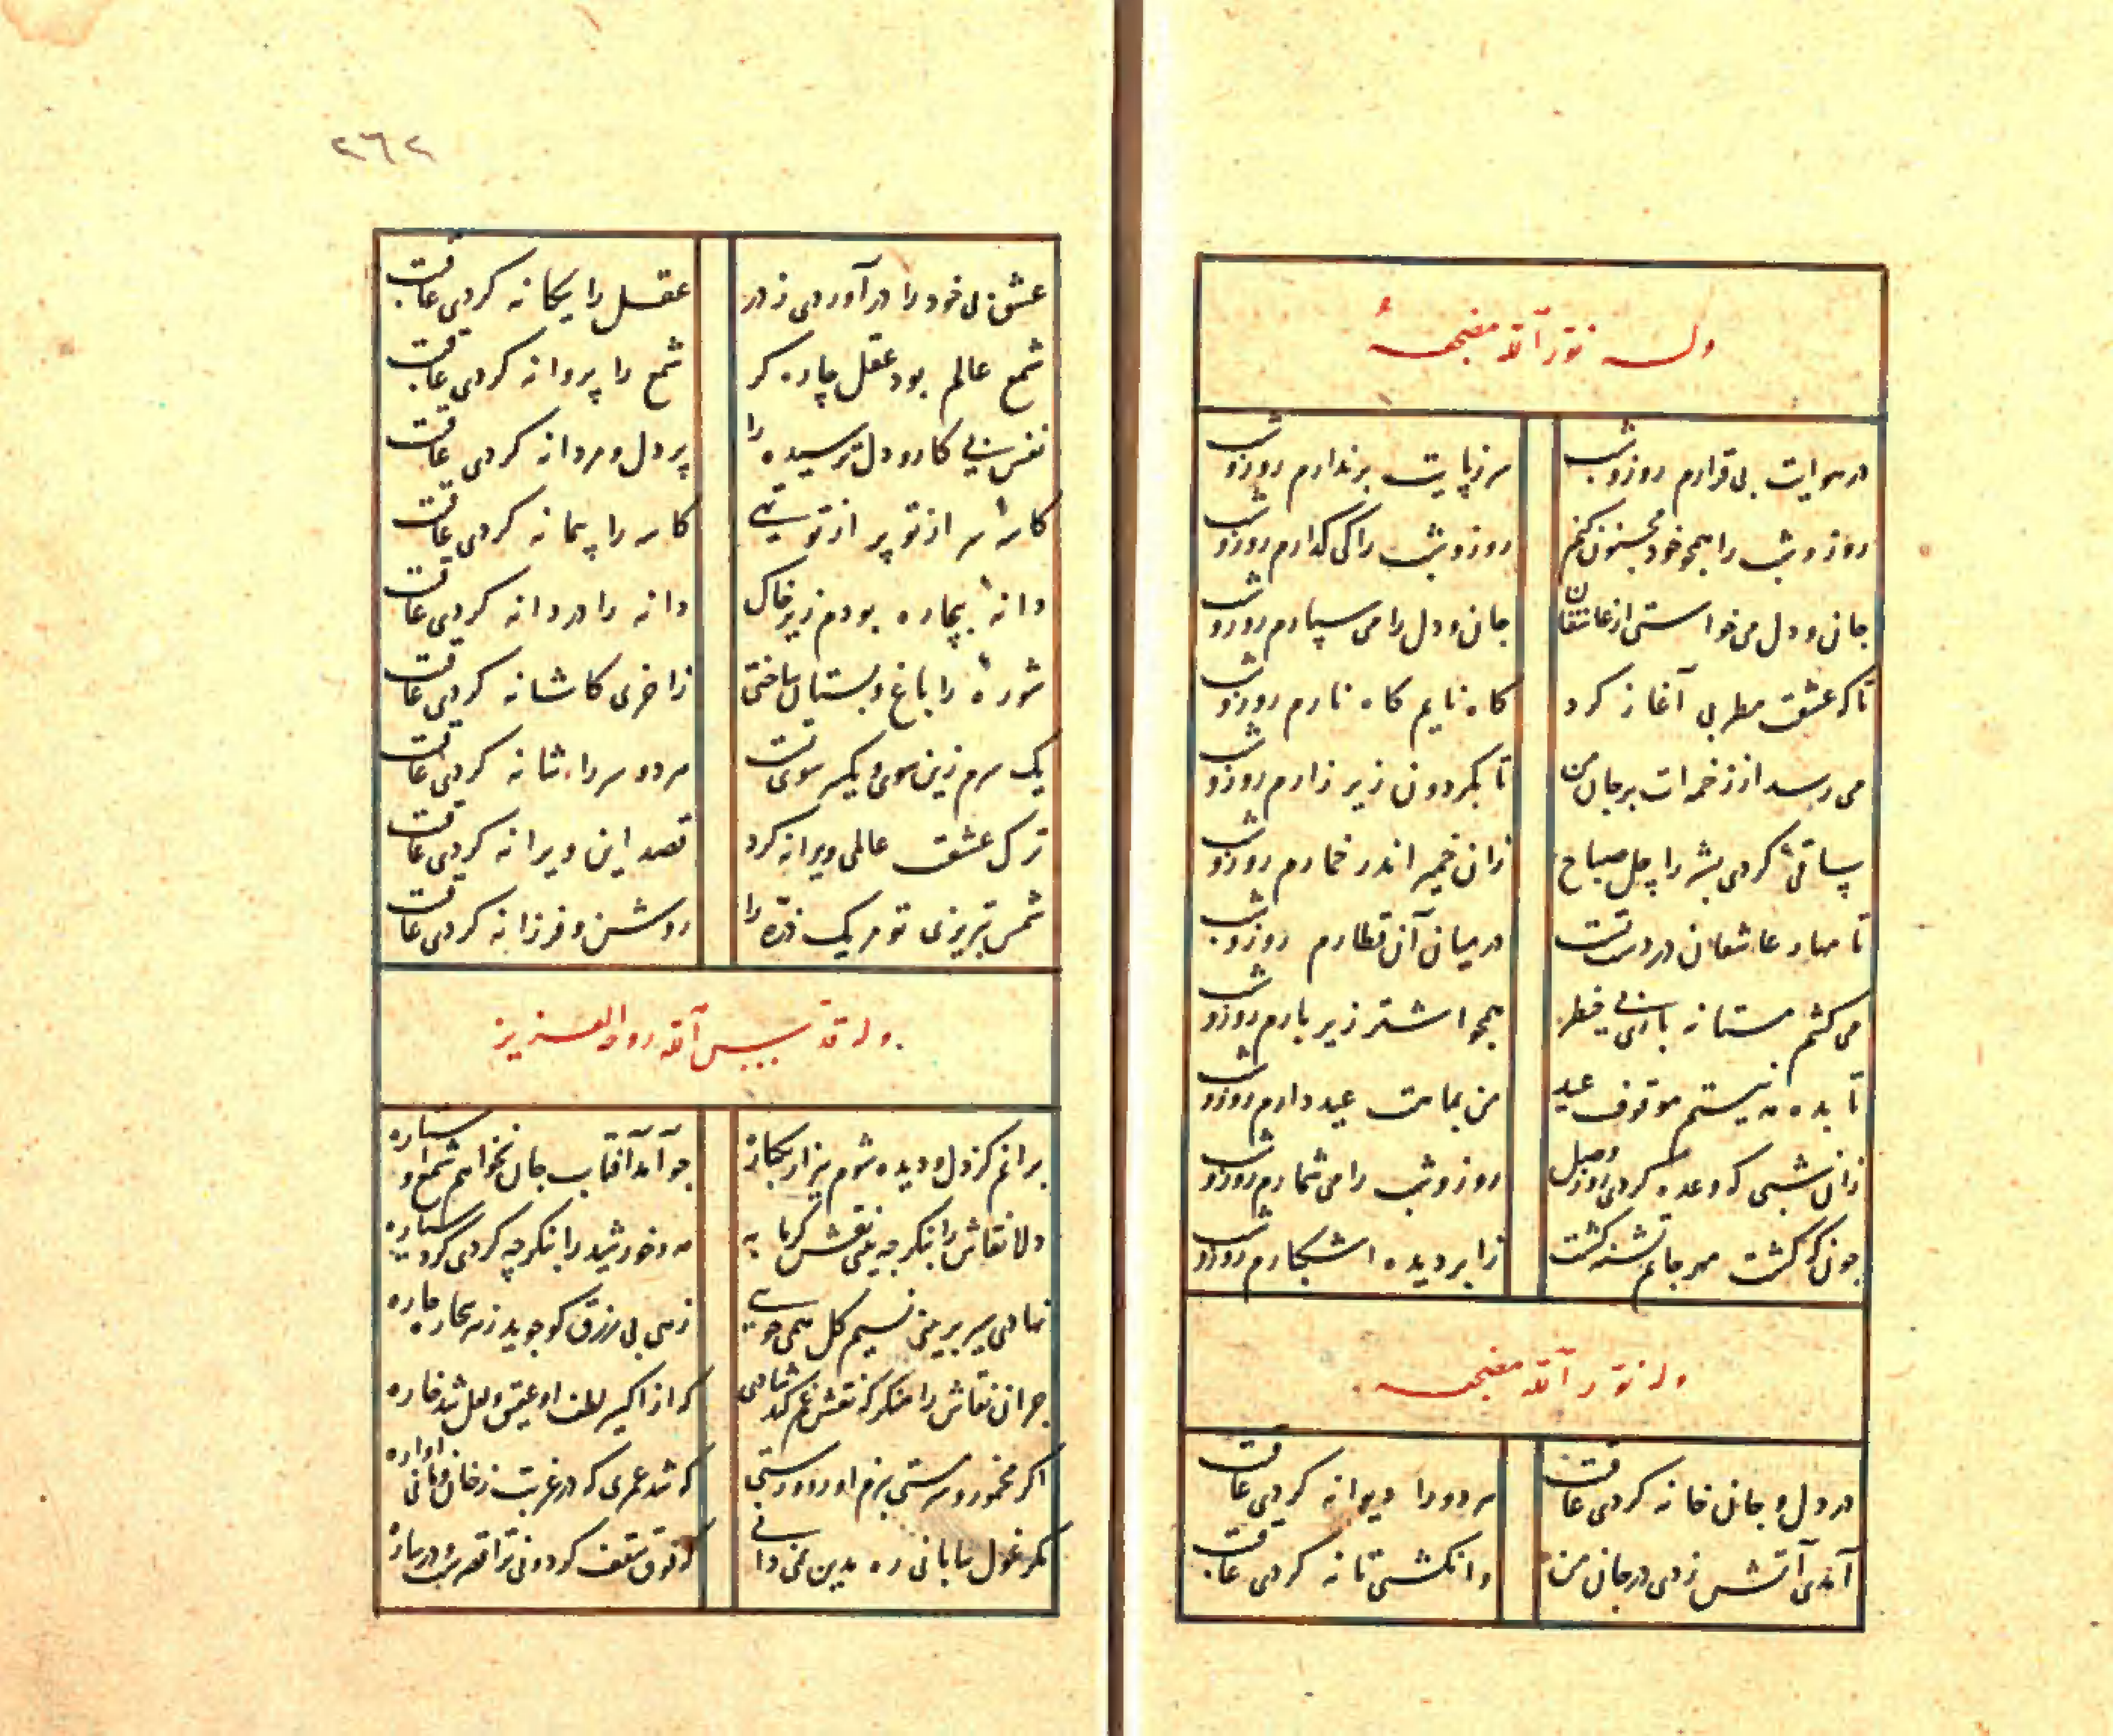 وله نور الله مضجعه
در هوایت بی قرارم روز و شب
سر ز پایت بر ندارم روز و شب
روز و شب را همچو خود مجنون کنم
روز و شب را کی گذارم روز و شب
جان و دل می خواستی از عاشقان
جان و دل را می سپارم روز و شب
تا که عشقت مطربی آغاز کرد
کاه نایم کاه تارم روز و شب
می رسد از زخمه ات بر جان من
تا بکردون زیر زارم روز و شب
ساقئی کردی بشر را چل صباح
زان خمیر اندر خمارم روز و شب
تا مهار عاشقان در دست تست
در میان آن قطارم روز و شب
می کشم مستانه بارت بی خطر
همچو اشتر زیر بارم روز و شب
تا بده مه نیستم موقوف عید
من بماهت عید دارم روز و شب
زان شبی که وعده کردی روز وصل
روز و شب را می شمارم روز و شب
چون که کشت مهر جانم تشنه کشت
ز ابر دیده اشکبارم روز و شب
وله نور الله مضجعه
در دل و جان خانه کردی عاقبت
هر دو را دیوانه کردی عاقبت
آمدی آتش زدی در جان من
وانکشتی تا نه کردی عاقبت
٢٦٢
عشق بی خود را در آوردی ز در
عقل را بیکانه کردی عاقبت
شمع عالم بود عقل چاره کر
شمع را پروانه کردی عاقبت
نفس بی کار و دل ترسیده را
پر دل و مردانه کردی عاقبت
کاسهٔ سر از تو پر از تو تهی
کاسه را پیمانه کردی عاقبت
دانهٔ بیچاره بودم زیر خاک
دانه را دردانه کردی عاقبت
شورهٔ را باغ و بستان ساختی
زاخری کاشانه کردی عاقبت
یک سرم زین سوی و یکسر سوی تست
هر دو سر را شانه کردی عاقبت
ترک عشقت عالمی ویرانه کرد
قصد این ویرانه کردی عاقبت
شمس تبریزی تو هر یک ذره را
روشن و فرزانه کردی عاقبت
وله قدس الله روحه العزیز
برانم کز دل و دیده شوم بیزار یکباره
چو آمد آفتاب جان نخواهم شمع و استاره
دلا نقاش را بنکر چه می بینی نقش کرمابه
مه و خورشید را بنکر چه کردی کرد سیاره
نهادی سیر بر بینی نسیم کل همی جویی
زهی بی رزق کو جوید ز هر بیچاره چاره
جز آن نقاش را منکر که نقش غم کند شادی
که از اکسیر لطف او عقیق و لعل شد خاره
اکر مخمور و سرمستی ببزم او رو و رستی
که شد عمری که در غربت ز خان و مانی اواره
مکر غول بیابانی ره مدین نمی دانی
که فوق سقف کردونی ترا قصرست و درساره